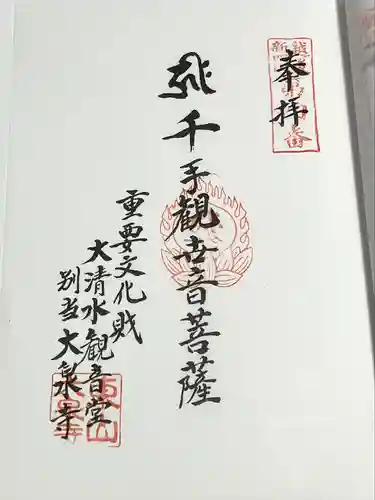 奉拝
千手観世音菩薩
重要文化財
大清水観音堂
別当大泉寺